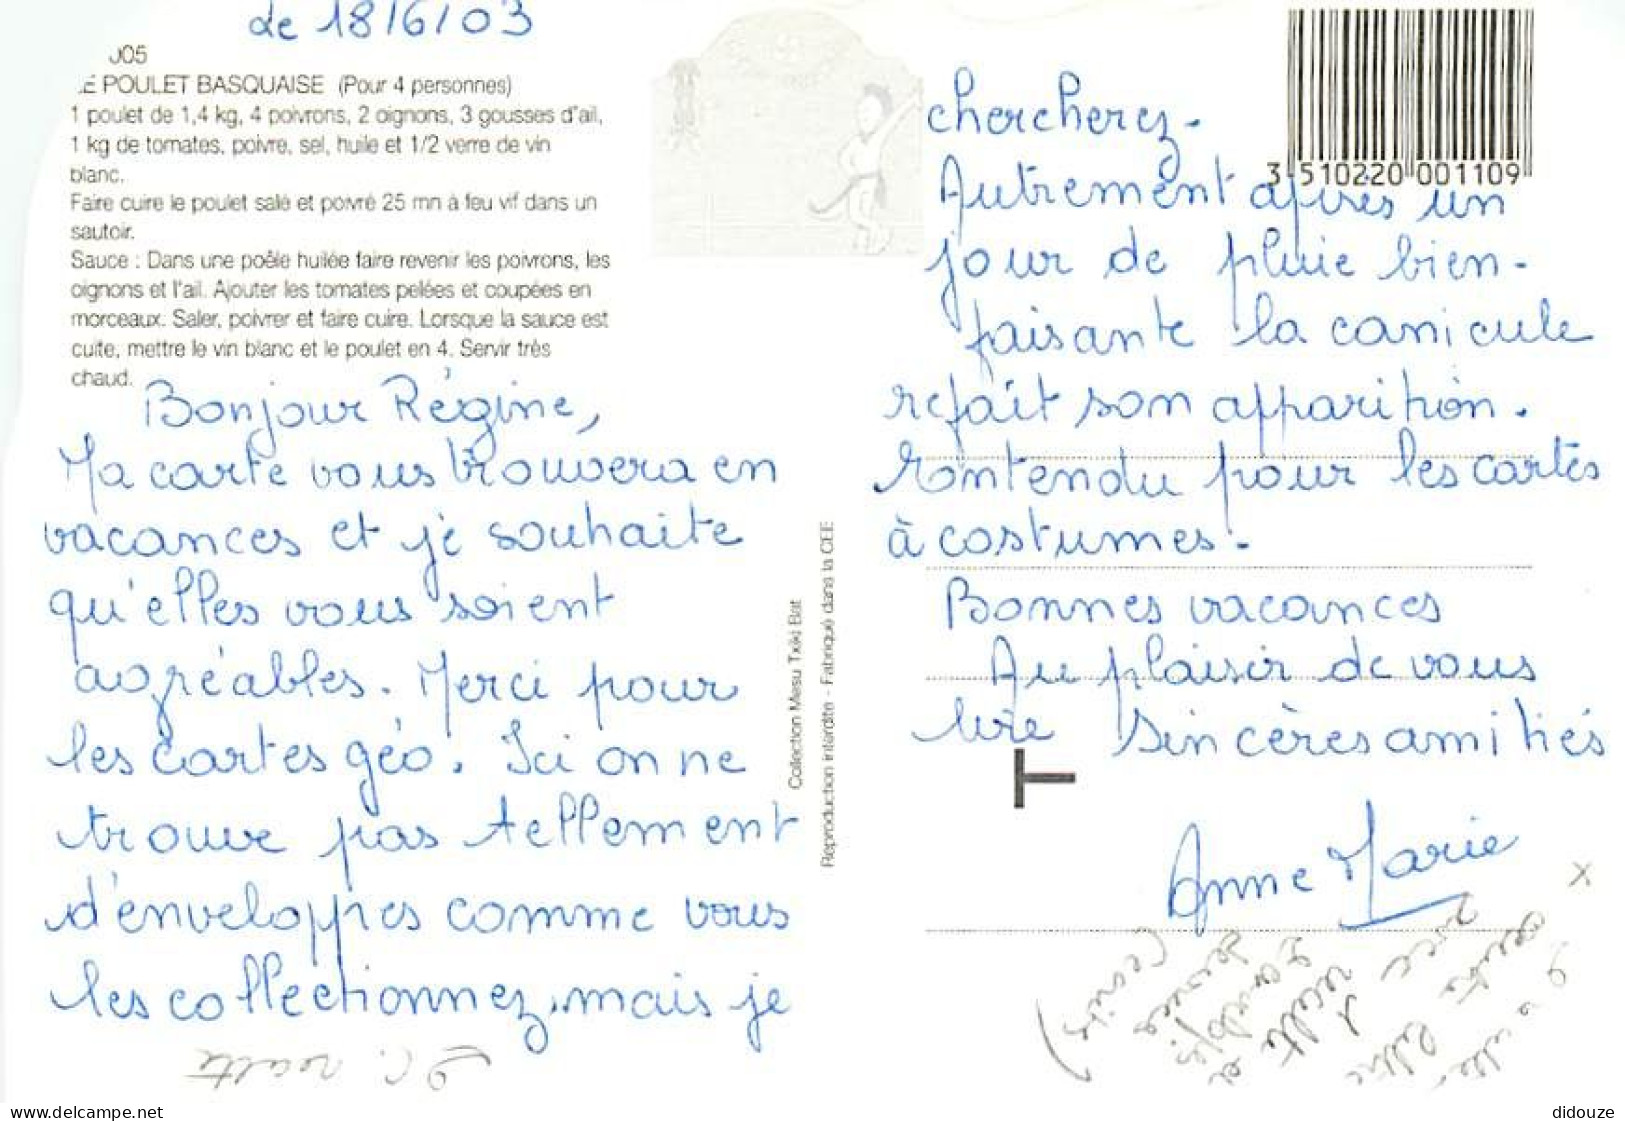 de 18/6/03
J05
LE POULET BASQUAISE (Pour 4 personnes)
1 poulet de 1,4 kg, 4 poivrons, 2 oignons, 3 gousses d'ail,
1 kg de tomates, poivre, sel, huile et 1/2 verre de vin
blanc.
Faire cuire le poulet salé et poivré 25 mn à feu vif dans un
sautoir.
Sauce : Dans une poêle huilée faire revenir les poivrons, les
oignons et l'ail. Ajouter les tomates pelées et coupées en
morceaux. Saler, poivrer et faire cuire. Lorsque la sauce est
cuite, mettre le vin blanc et le poulet en 4. Servir très
chaud.
Bonjour Régine,
Ma carte vous trouvera en
vacances et je souhaite
qu'elles vous soient
agréables. Merci pour
les cartes géo. Ici on ne
trouve pas tellement
d'enveloppes comme vous
les collectionnez, mais je
Collection Mesu Txiki Bat
Reproduction interdite - Fabriqué dans la CEE
3 510220 001109
chercherez.
Autrement après un
jour de pluie bien-
faisante la canicule
refait son apparition.
Entendu pour les cartes
à costumes.
Bonnes vacances
Au plaisir de vous
lire Sincères amitiés
Anne Marie
delcampe.net
didouze